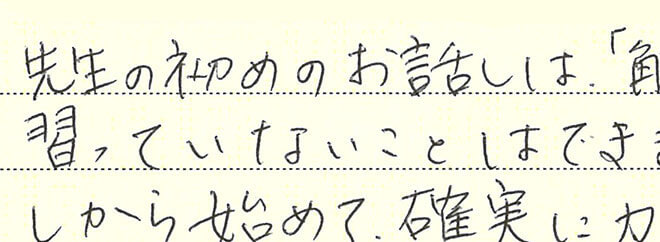 先生の初めのお話しは、「角
習っていないことはできま
しから始めて、確実に力